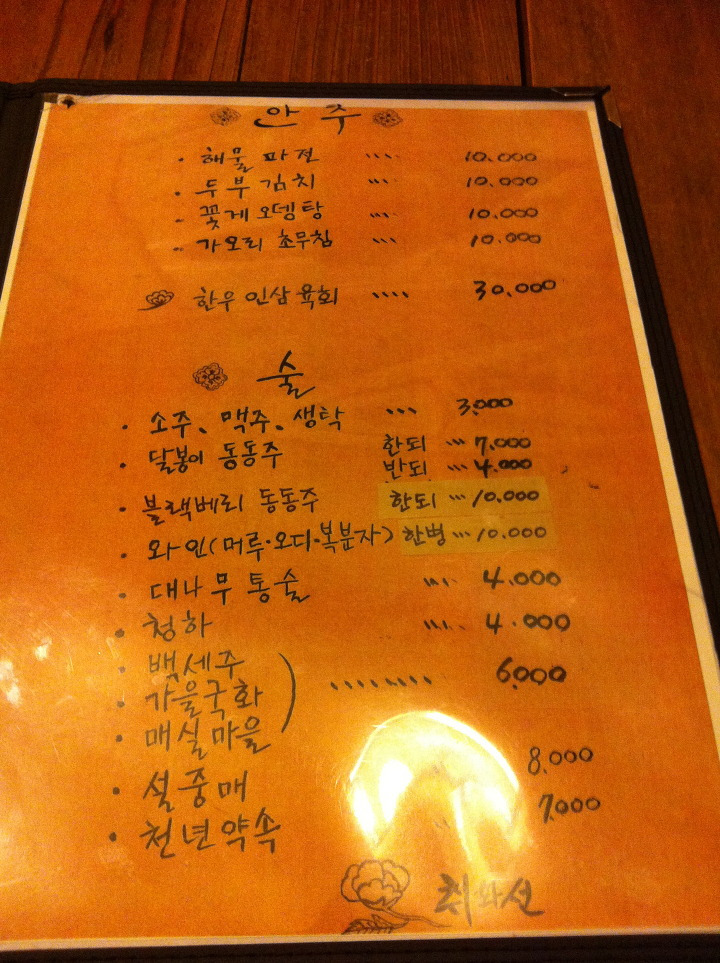 안주
· 해물 파전 .... 10.000
· 두부 김치 ... 10.000
· 꽃게 오뎅탕 ... 10.000
· 가오리 초무침 ... 10.000
한우 인삼 육회 .... 30.000
술
· 소주、맥주、생탁 ... 3,000
· 달봉이 동동주 한되 ... 7,000
반되 ... 4.000
· 블랙베리 동동주 한되 ... 10.000
· 와인(머루·오디·복분자) 한병 ... 10.000
· 대나무 통술 .... 4.000
· 청하 .... 4.000
· 백세주
· 가을국화 ) ......... 6,000
· 매실마을
· 설중매 8.000
· 천년약속 7,000
취화선